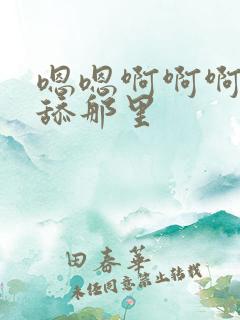 嗯嗯啊啊啊
舔那里
田春华
未经同意禁止转载